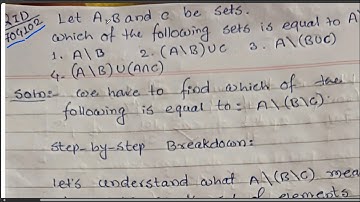 QID
704102
Let A, B and C be sets.
which of the following sets is equal to A
1. A\B 2. (A\B)∪C 3. A\(B∪C)
4. (A\B)∪(A∩C)
Soln:- we have to find which of the
following is equal to: A\(B\C).
step-by-step Breakdown:
Let's understand what A\(B\C) mea
of elements